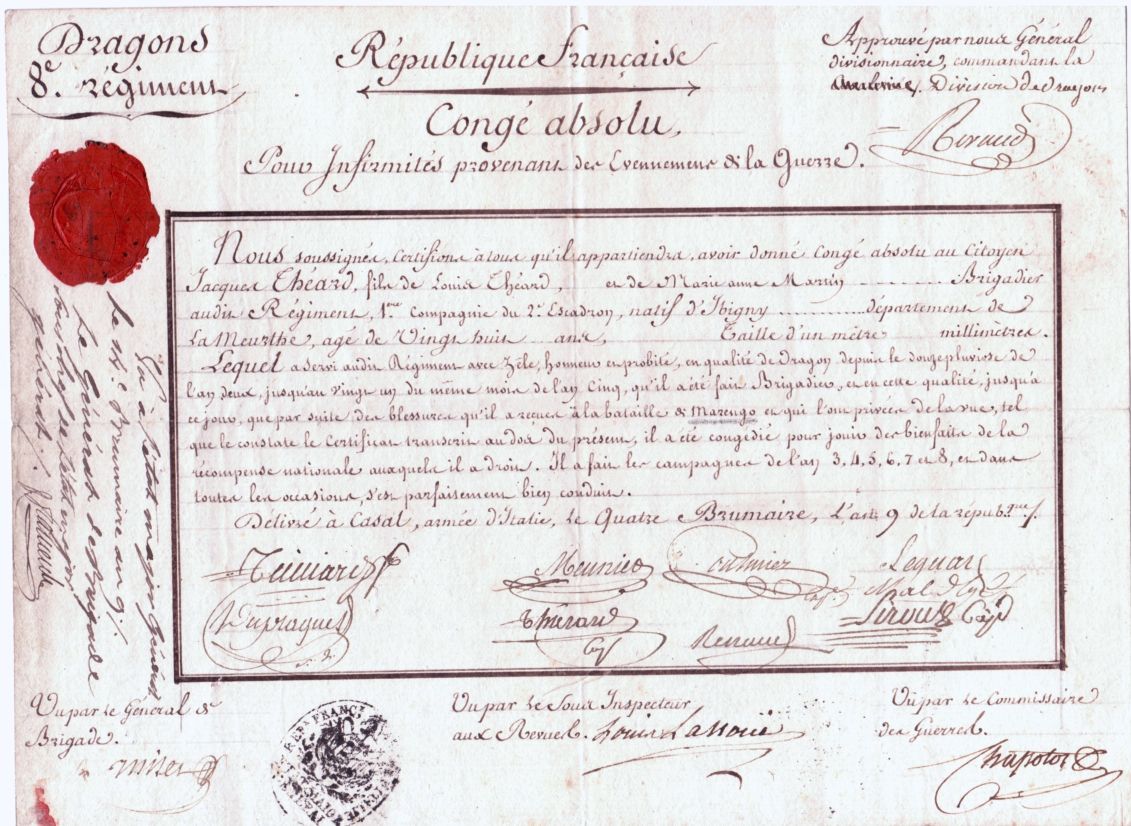 Dragons
8.e régiment
République Française
Congé absolu,
Pour Infirmités provenant des Evennemens de la Guerre.
Approuvé par nous Général
divisionnaire, commandant la
Division de dragons
Nous soussignés, Certifions à tous qu'il appartiendra, avoir donné Congé absolu au Citoyen
Jacques Théard, fils de Louis Théard, et de Marie anne Martin Brigadier
audit Régiment, 1.ere Compagnie du 2.e Escadron, natif d'Itigny département de
La Meurthe, agé de Vingt huit ans, Taille d'un mètre millimètres.
Lequel a servi audit Régiment avec Zèle, honneur et probité, en qualité de Dragon depuis le douze pluviose de
l'an deux, jusqu'au vingt un du même mois de l'an Cinq, qu'il a été fait Brigadier, et en cette qualité, jusqu'à
ce jour, que par suite des blessures qu'il a reçues à la bataille de Marengo et qui l'ont privée de la vue, tel
que le constate le Certificat transcrit au dos du présent, il a été congédié pour jouir des bienfaits de la
récompense nationale auxquels il a droit. Il a fait les campagnes de l'an 3, 4, 5, 6, 7 et 8, et dans
toutes les occasions, s'est parfaitement bien conduit.
Délivré à Casal, armée d'Italie, le Quatre Brumaire, L'an 9 de la répub.que /.
Meunier
Thérard
Cap
Vu à l'état major général
le Brumaire an 9 /.
Le Général de Brigade
sous chef de l'état major
général /.
Vu par le Général de
Brigade.
Vu par le Sous Inspecteur
aux Revues.
Vu par le Commissaire
des Guerres.